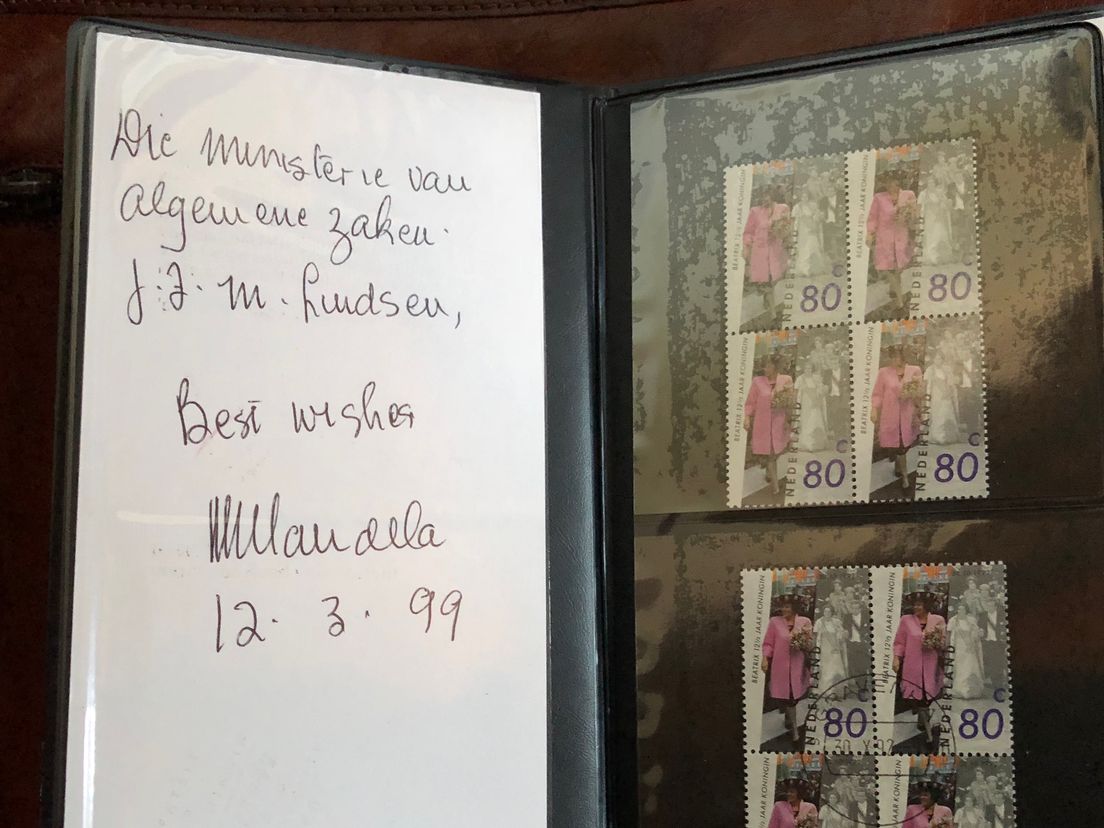 Die ministerie van
algemene zaken.
J.J.M. Lindsen,
Best wishes
NMandela
12.3.99
BEATRIX 12½ JAAR KONINGIN
NEDERLAND
80 c
BEATRIX 12½ JAAR KONINGIN
NEDERLAND
80 c
BEATRIX 12½ JAAR KONINGIN
NEDERLAND
80 c
BEATRIX 12½ JAAR KONINGIN
NEDERLAND
80 c
BEATRIX 12½ JAAR KONINGIN
NEDERLAND
80 c
BEATRIX 12½ JAAR KONINGIN
NEDERLAND
80 c
30 X 92
JAAR KONINGIN
JAAR KONINGIN